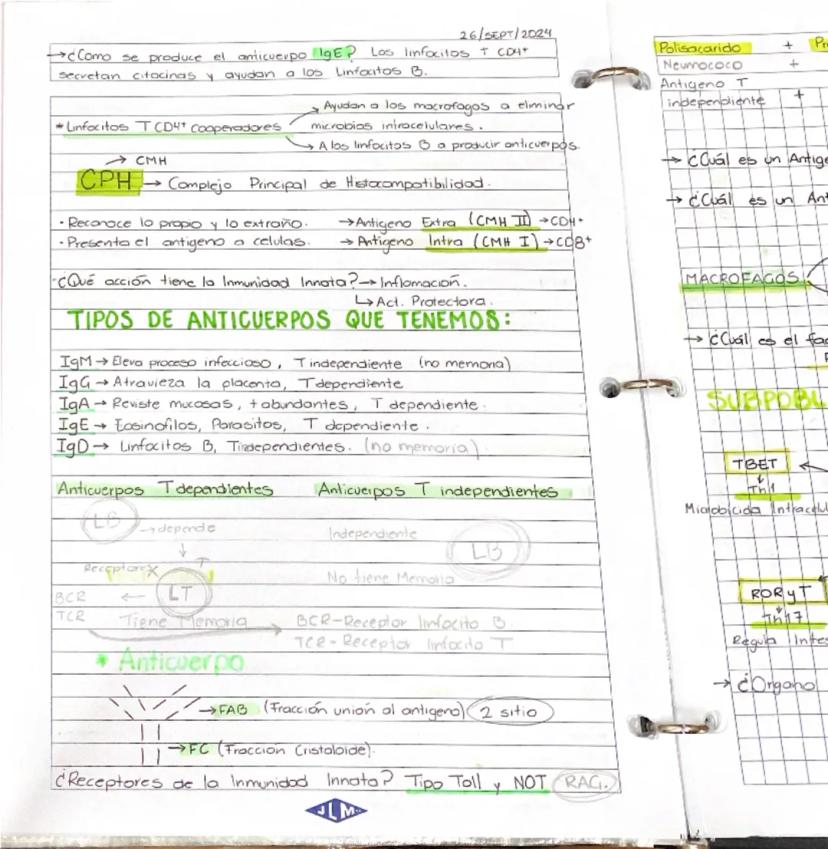 26/SEPT/2024
→¿Como se produce el anticuerpo IgE? Los linfocitos T CD4+
secretan citocinas y ayudan a los Linfocitos B.
Ayudan a los macrofagos a eliminar
* Linfocitos T CD4+ cooperadores
microbios intracelulares.
A los linfocitos B a producir anticuerpos.
→ CMH
CPH → Complejo Principal de Histocompatibilidad.
· Reconoce lo propio y lo extraño. → Antigeno Extra (CMH II) → CD4+
· Presenta el antigeno a celulas. → Antigeno Intra (CMH I) → CD8+
·¿Qué acción tiene la Inmunidad Innata? → Inflamación.
↳ Act. Protectora.
TIPOS DE ANTICUERPOS QUE TENEMOS:
IgM → Eleva proceso infeccioso, T independiente (no memoria)
IgG → Atravieza la placenta, T dependiente
IgA → Reviste mucosas, + abundantes, T dependiente.
IgE → Eosinofilos, Parasitos, T dependiente.
IgD → Linfocitos B, T independientes. (no memoria)
Anticuerpos T dependientes Anticuerpos T independientes
LB → depende
Independiente
LB
Receptores T
No tiene Memoria
BCR ← LT
TCR Tiene Memoria → BCR-Receptor linfocito B
TCR-Receptor linfocito T
* Anticuerpo
→ FAB (Fracción unión al antigeno) 2 sitio
→ FC (Fracción Cristaloide).
¿Receptores de la Inmunidad Innata? Tipo Toll y NOT RAG.
JLM
Polisacarido +
Neumococo +
Antigeno T
independiente +
→ ¿Cuál es un
→ ¿Cuál es un
MACROFAGOS
→ ¿Cuál es el
TBET
Th1
Microbicida
RORyT
Th17
Regula
→ ¿Organo